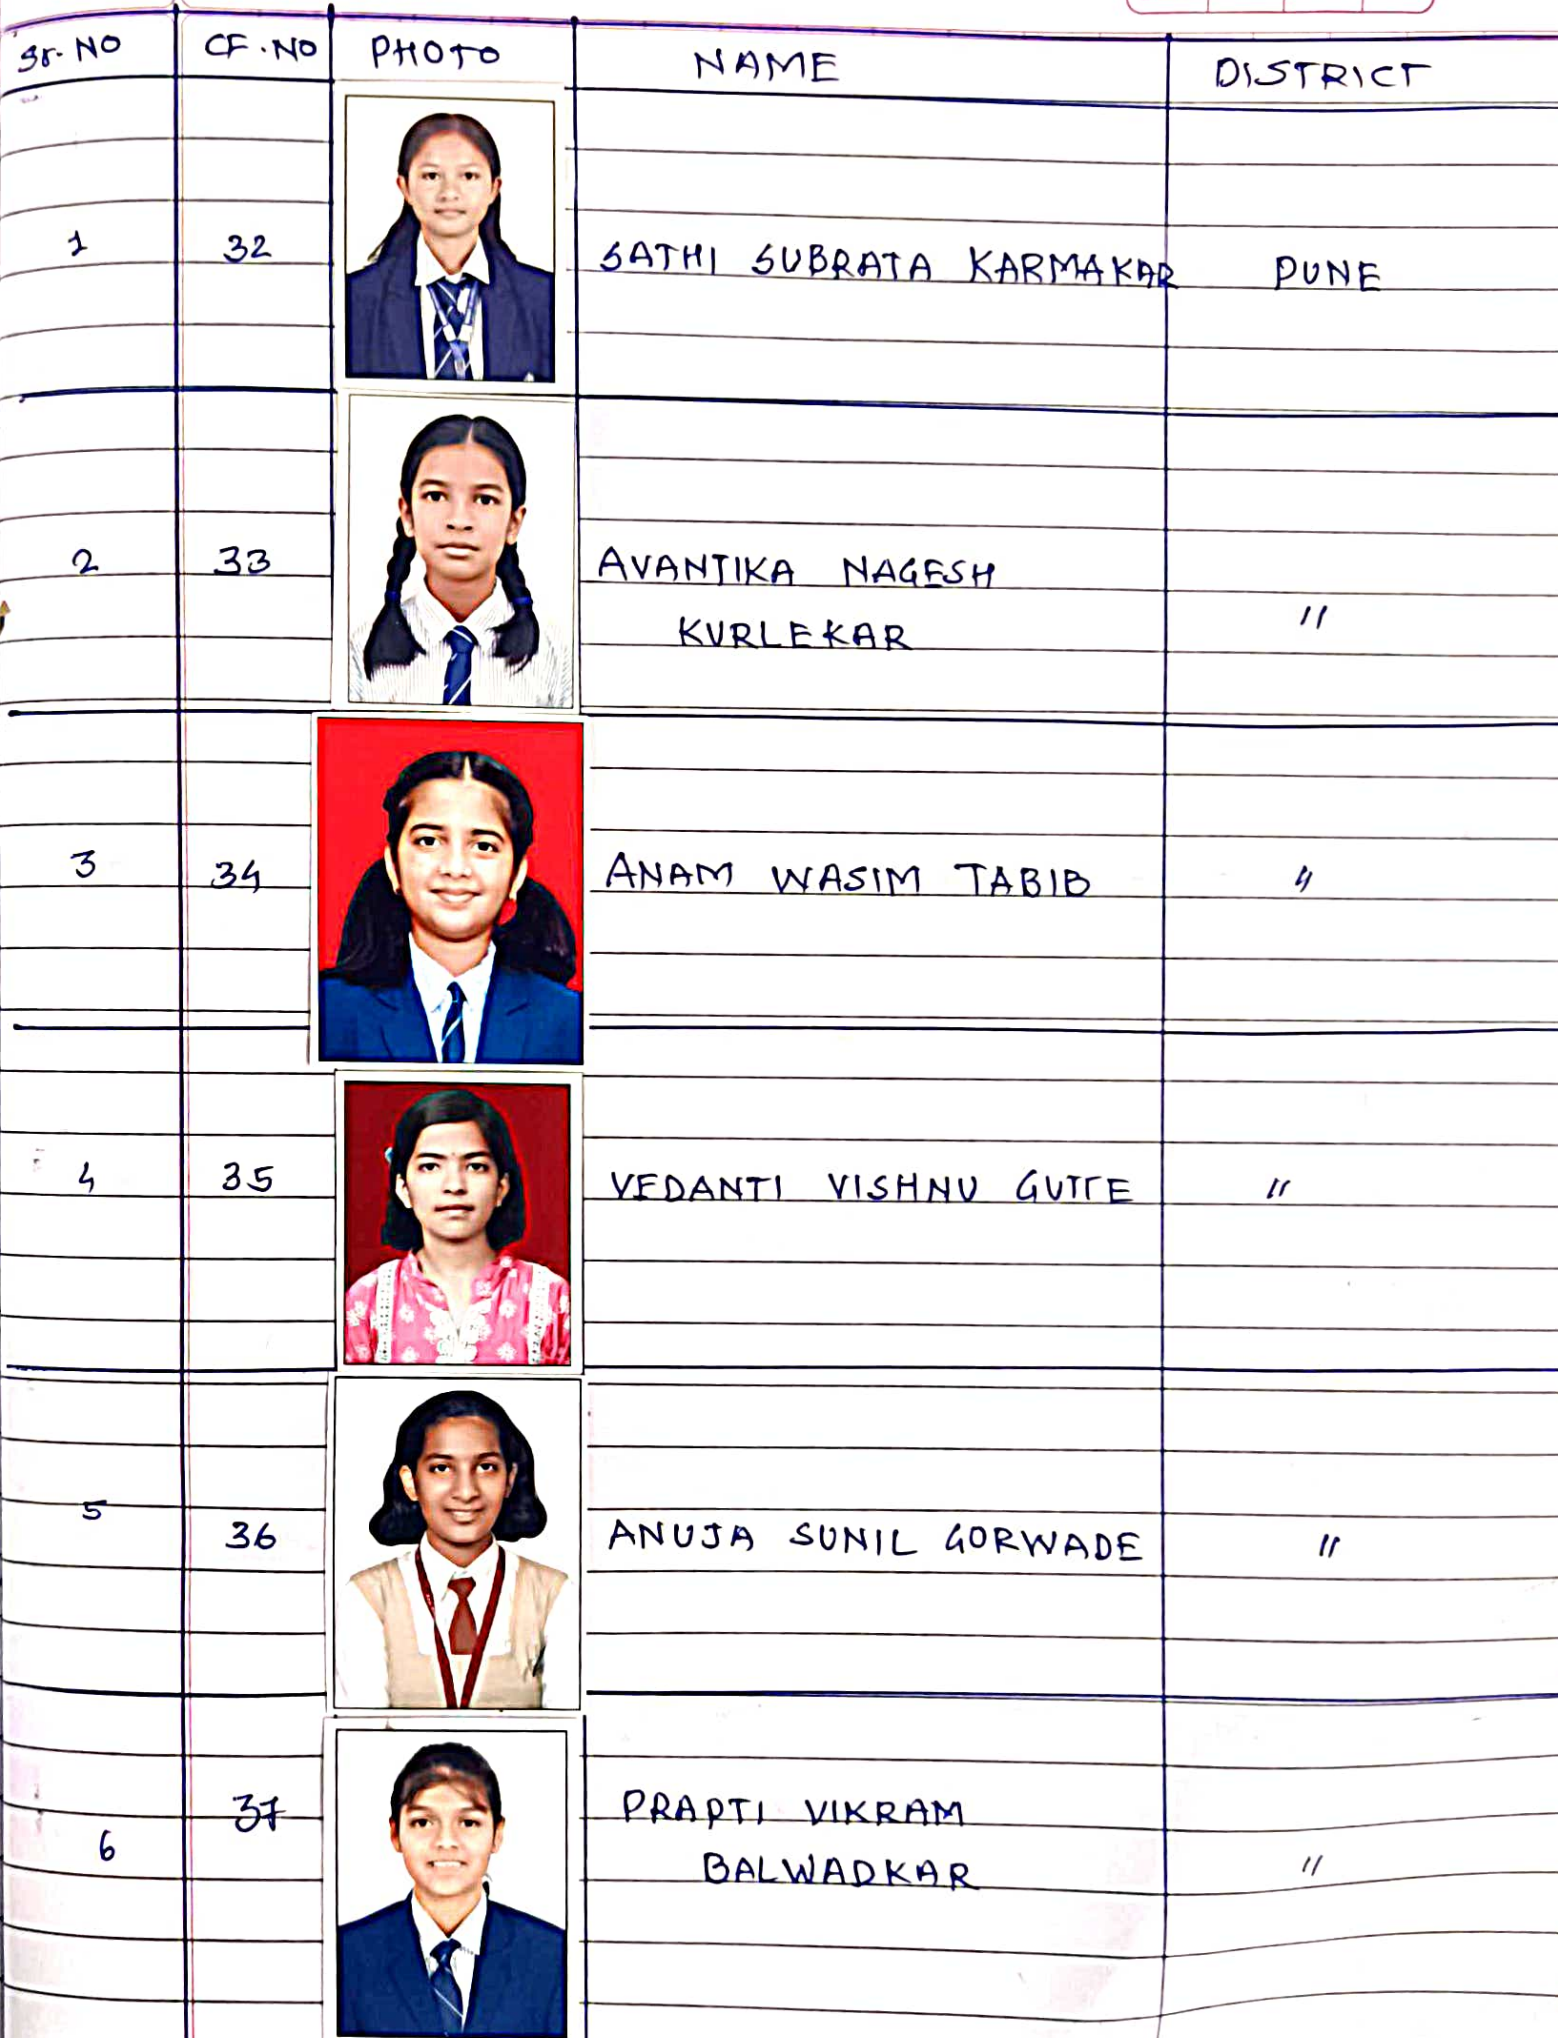 Sr. NO CF. NO PHOTO NAME DISTRICT
1 32 SATHI SUBRATA KARMAKAR PUNE
2 33 AVANTIKA NAGESH
KURLEKAR "
3 34 ANAM WASIM TABIB "
4 35 VEDANTI VISHNU GUTTE "
5 36 ANUJA SUNIL GORWADE "
37 PRAPTI VIKRAM
6 BALWADKAR "